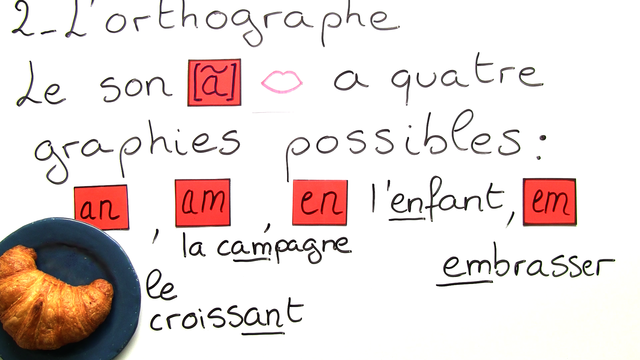 2-L'orthographe
Le son [ã] a quatre
graphies possibles :
an, am, en l'enfant, em
la campagne
embrasser
le
croissant